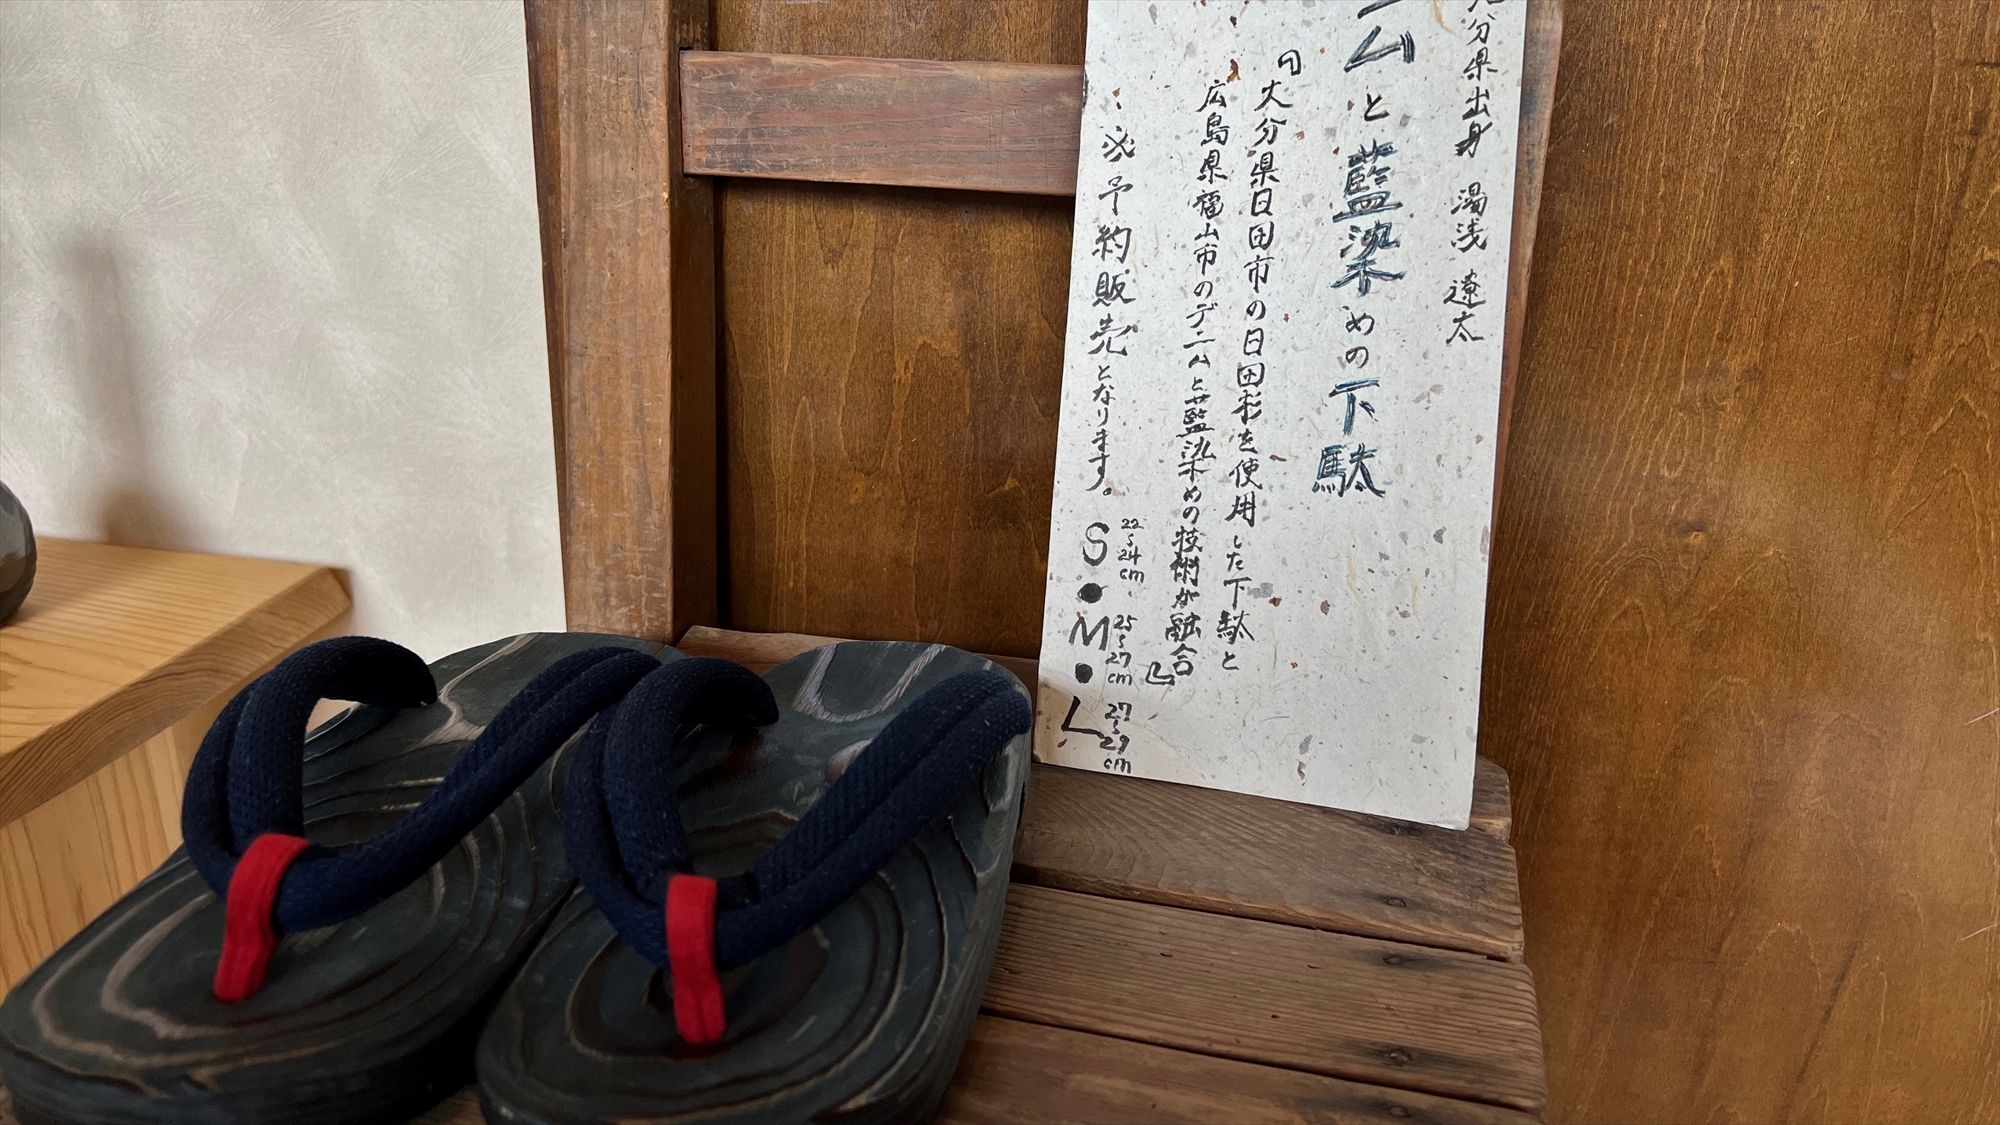 分県出身 湯浅 遼太
ニムと藍染めの下駄
『大分県日田市の日田杉を使用した下駄と
広島県福山市のデニムと藍染めの技術が融合』
※予約販売となります。
S 22〜24cm
・
M 25〜27cm
・
L 27〜29cm